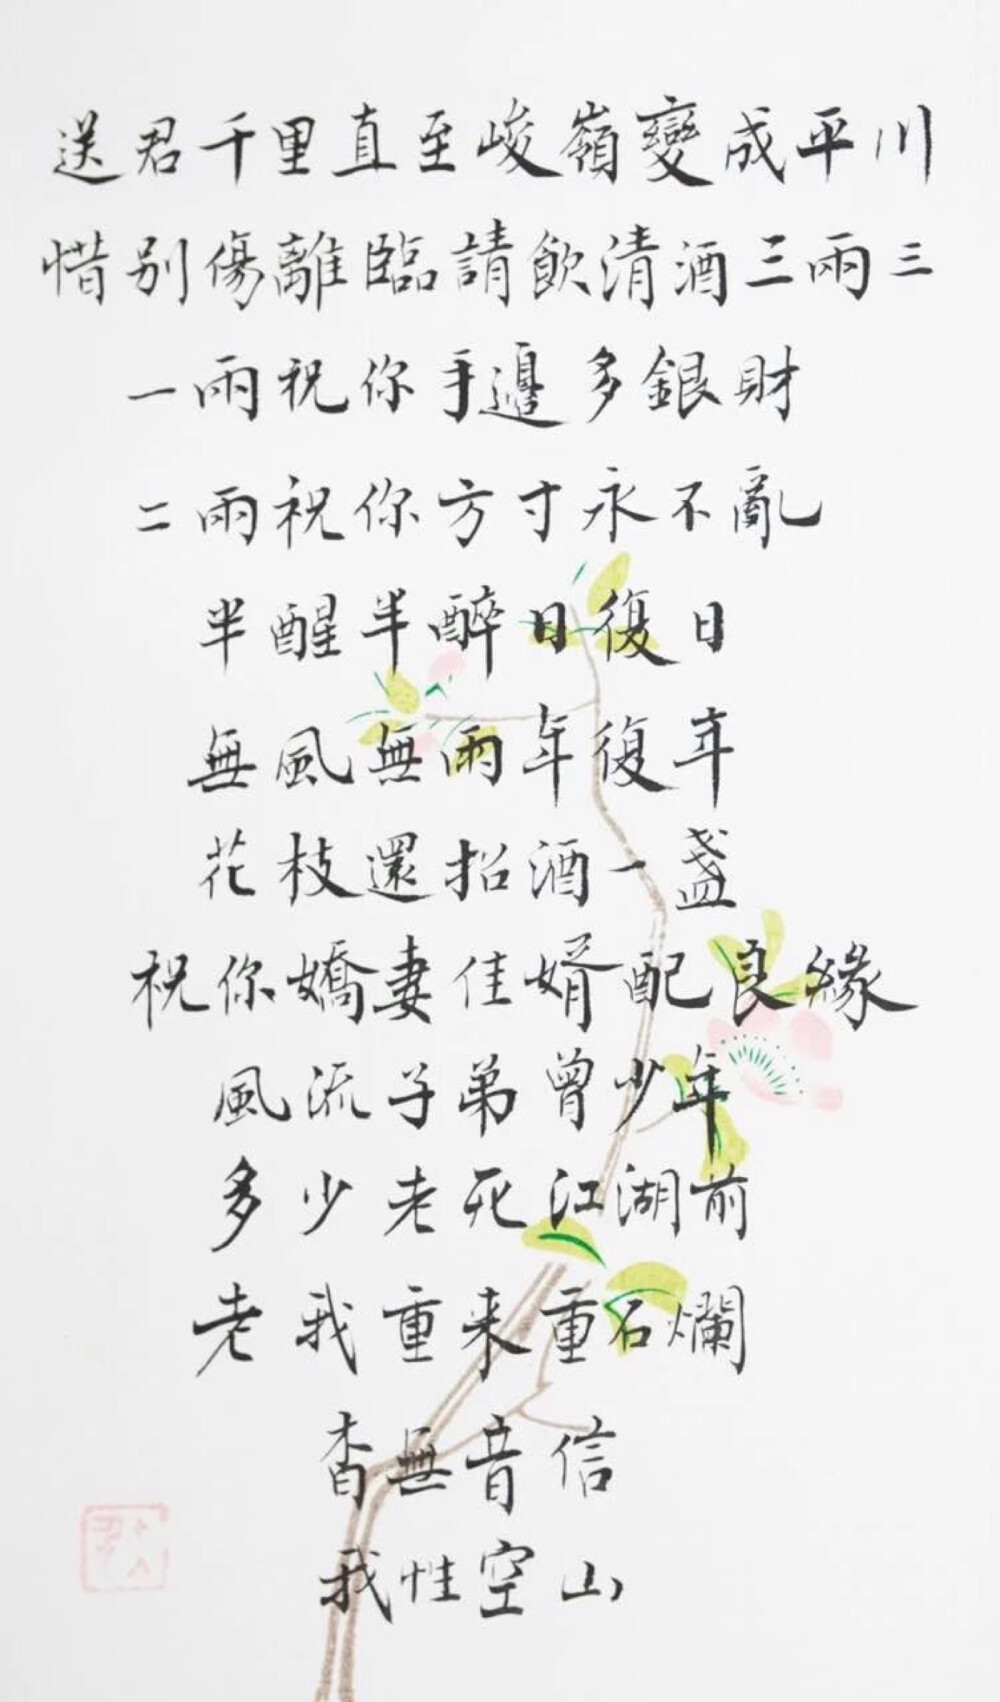 送君千里直至峻嶺變成平川
惜別傷離臨請飲清酒三兩三
一兩祝你手邊多銀財
二兩祝你方寸永不亂
半醒半醉日復日
無風無雨年復年
花枝還招酒一盞
祝你嬌妻佳婿配良緣
風流子弟曾少年
多少老死江湖前
老我重来重石爛
杳無音信
我性空山